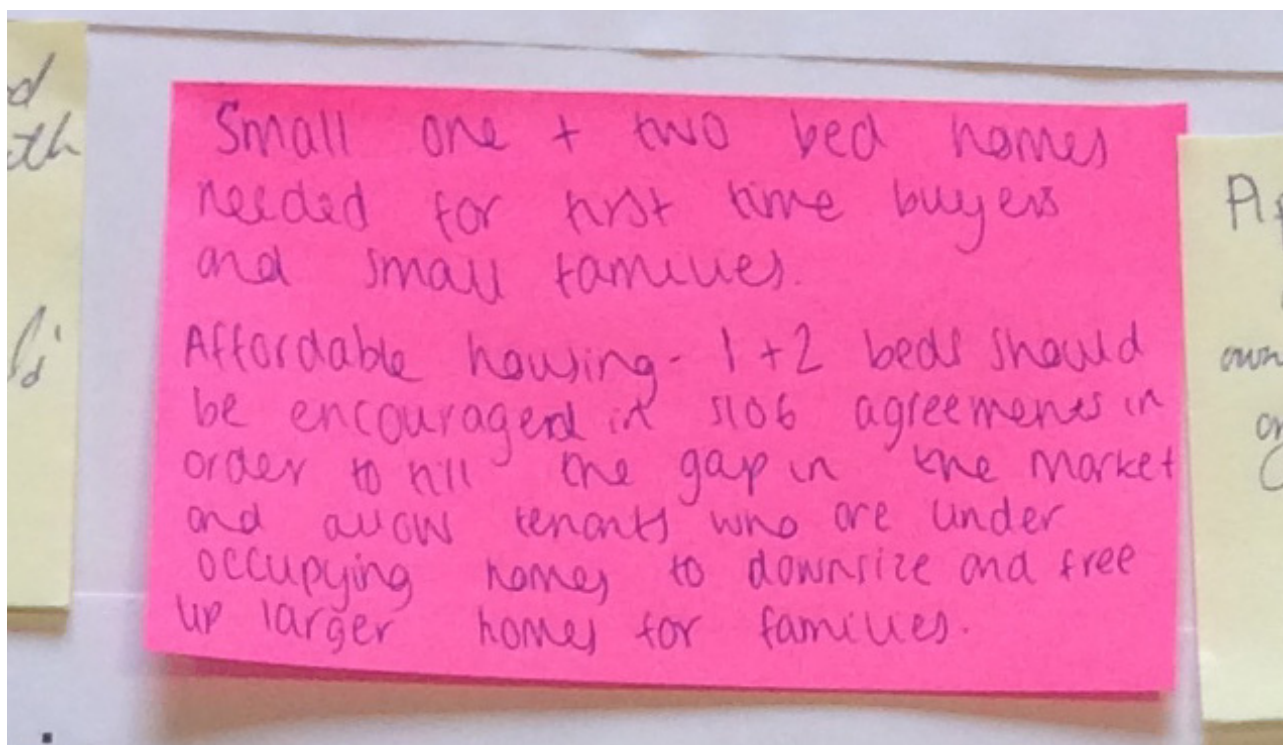 Small one + two bed homes
needed for first time buyers
and small families.
Affordable housing - 1 + 2 beds should
be encouraged in S106 agreements in
order to fill the gap in the market
and allow tenants who are under
occupying homes to downsize and free
up larger homes for families.
own